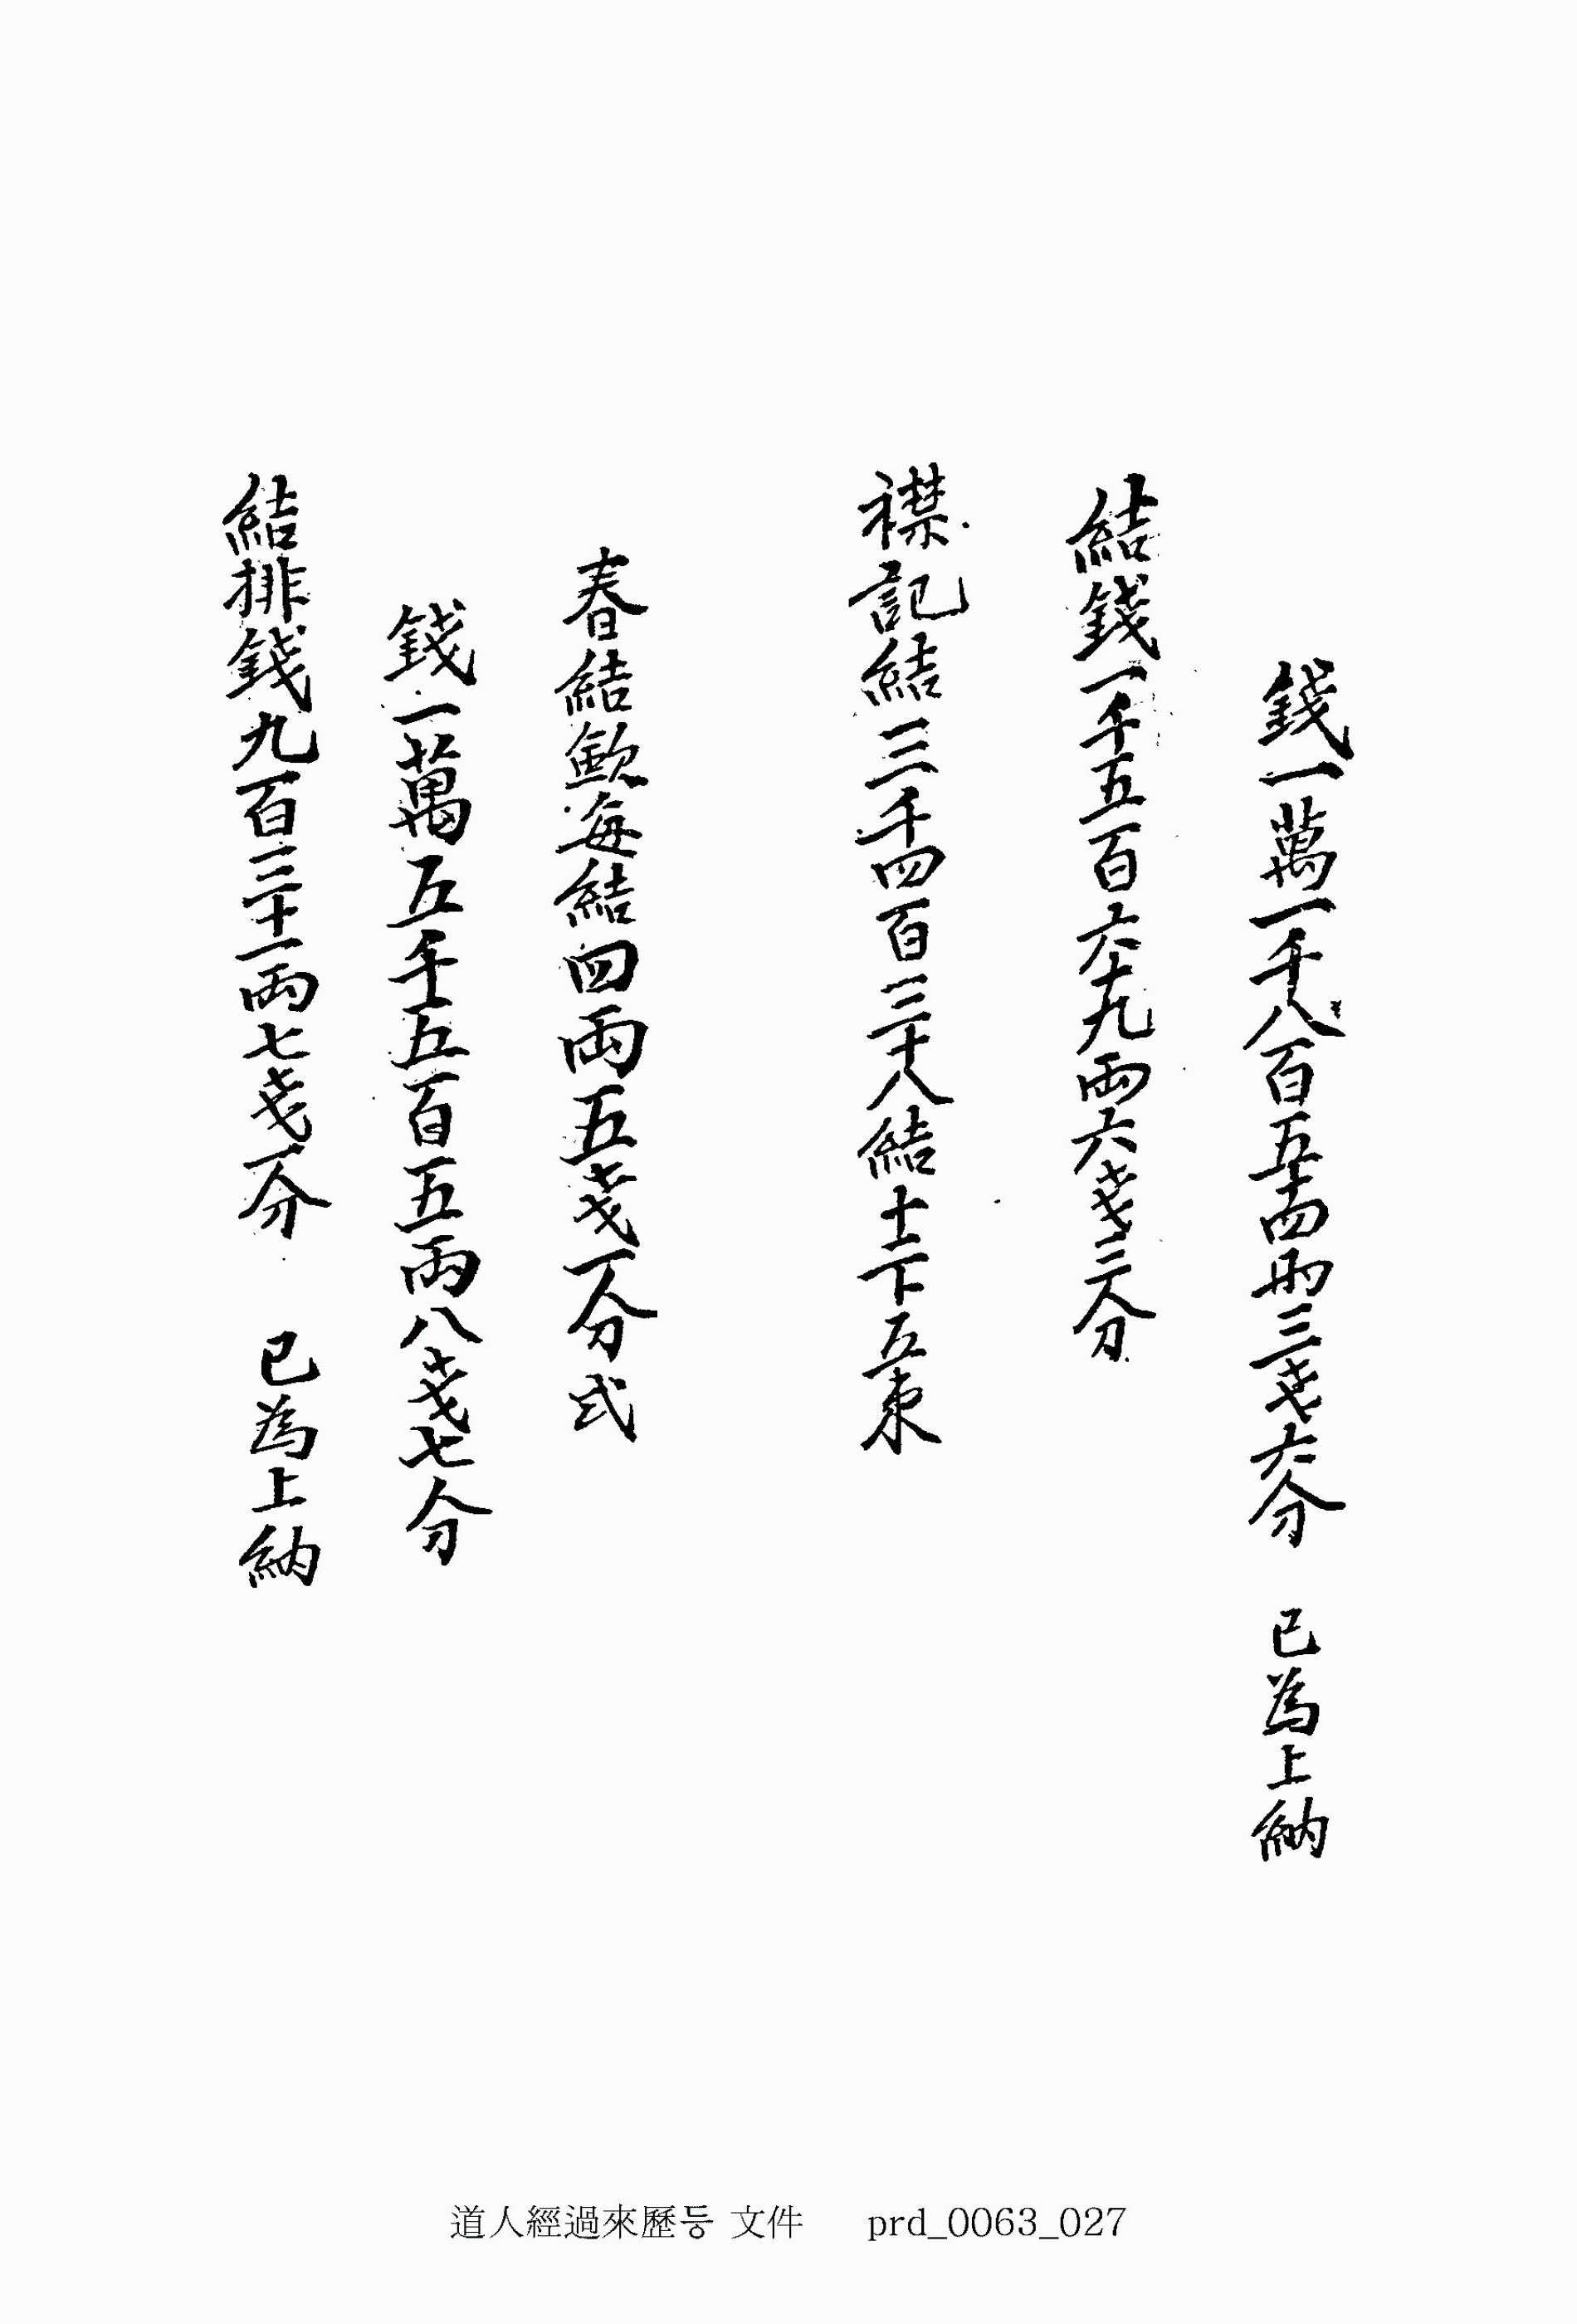 錢一萬一千八百五十四兩三戔六分 已為上納
結錢一千五百六十九兩六戔三分
襟記結三千四百三十八結十二卜五束
春結歛每結四兩五戔一分式
錢一萬五千五百五兩八戔七分
結排錢九百三十一兩七戔一分 已為上納
道人經過來歷등 文件 prd_0063_027